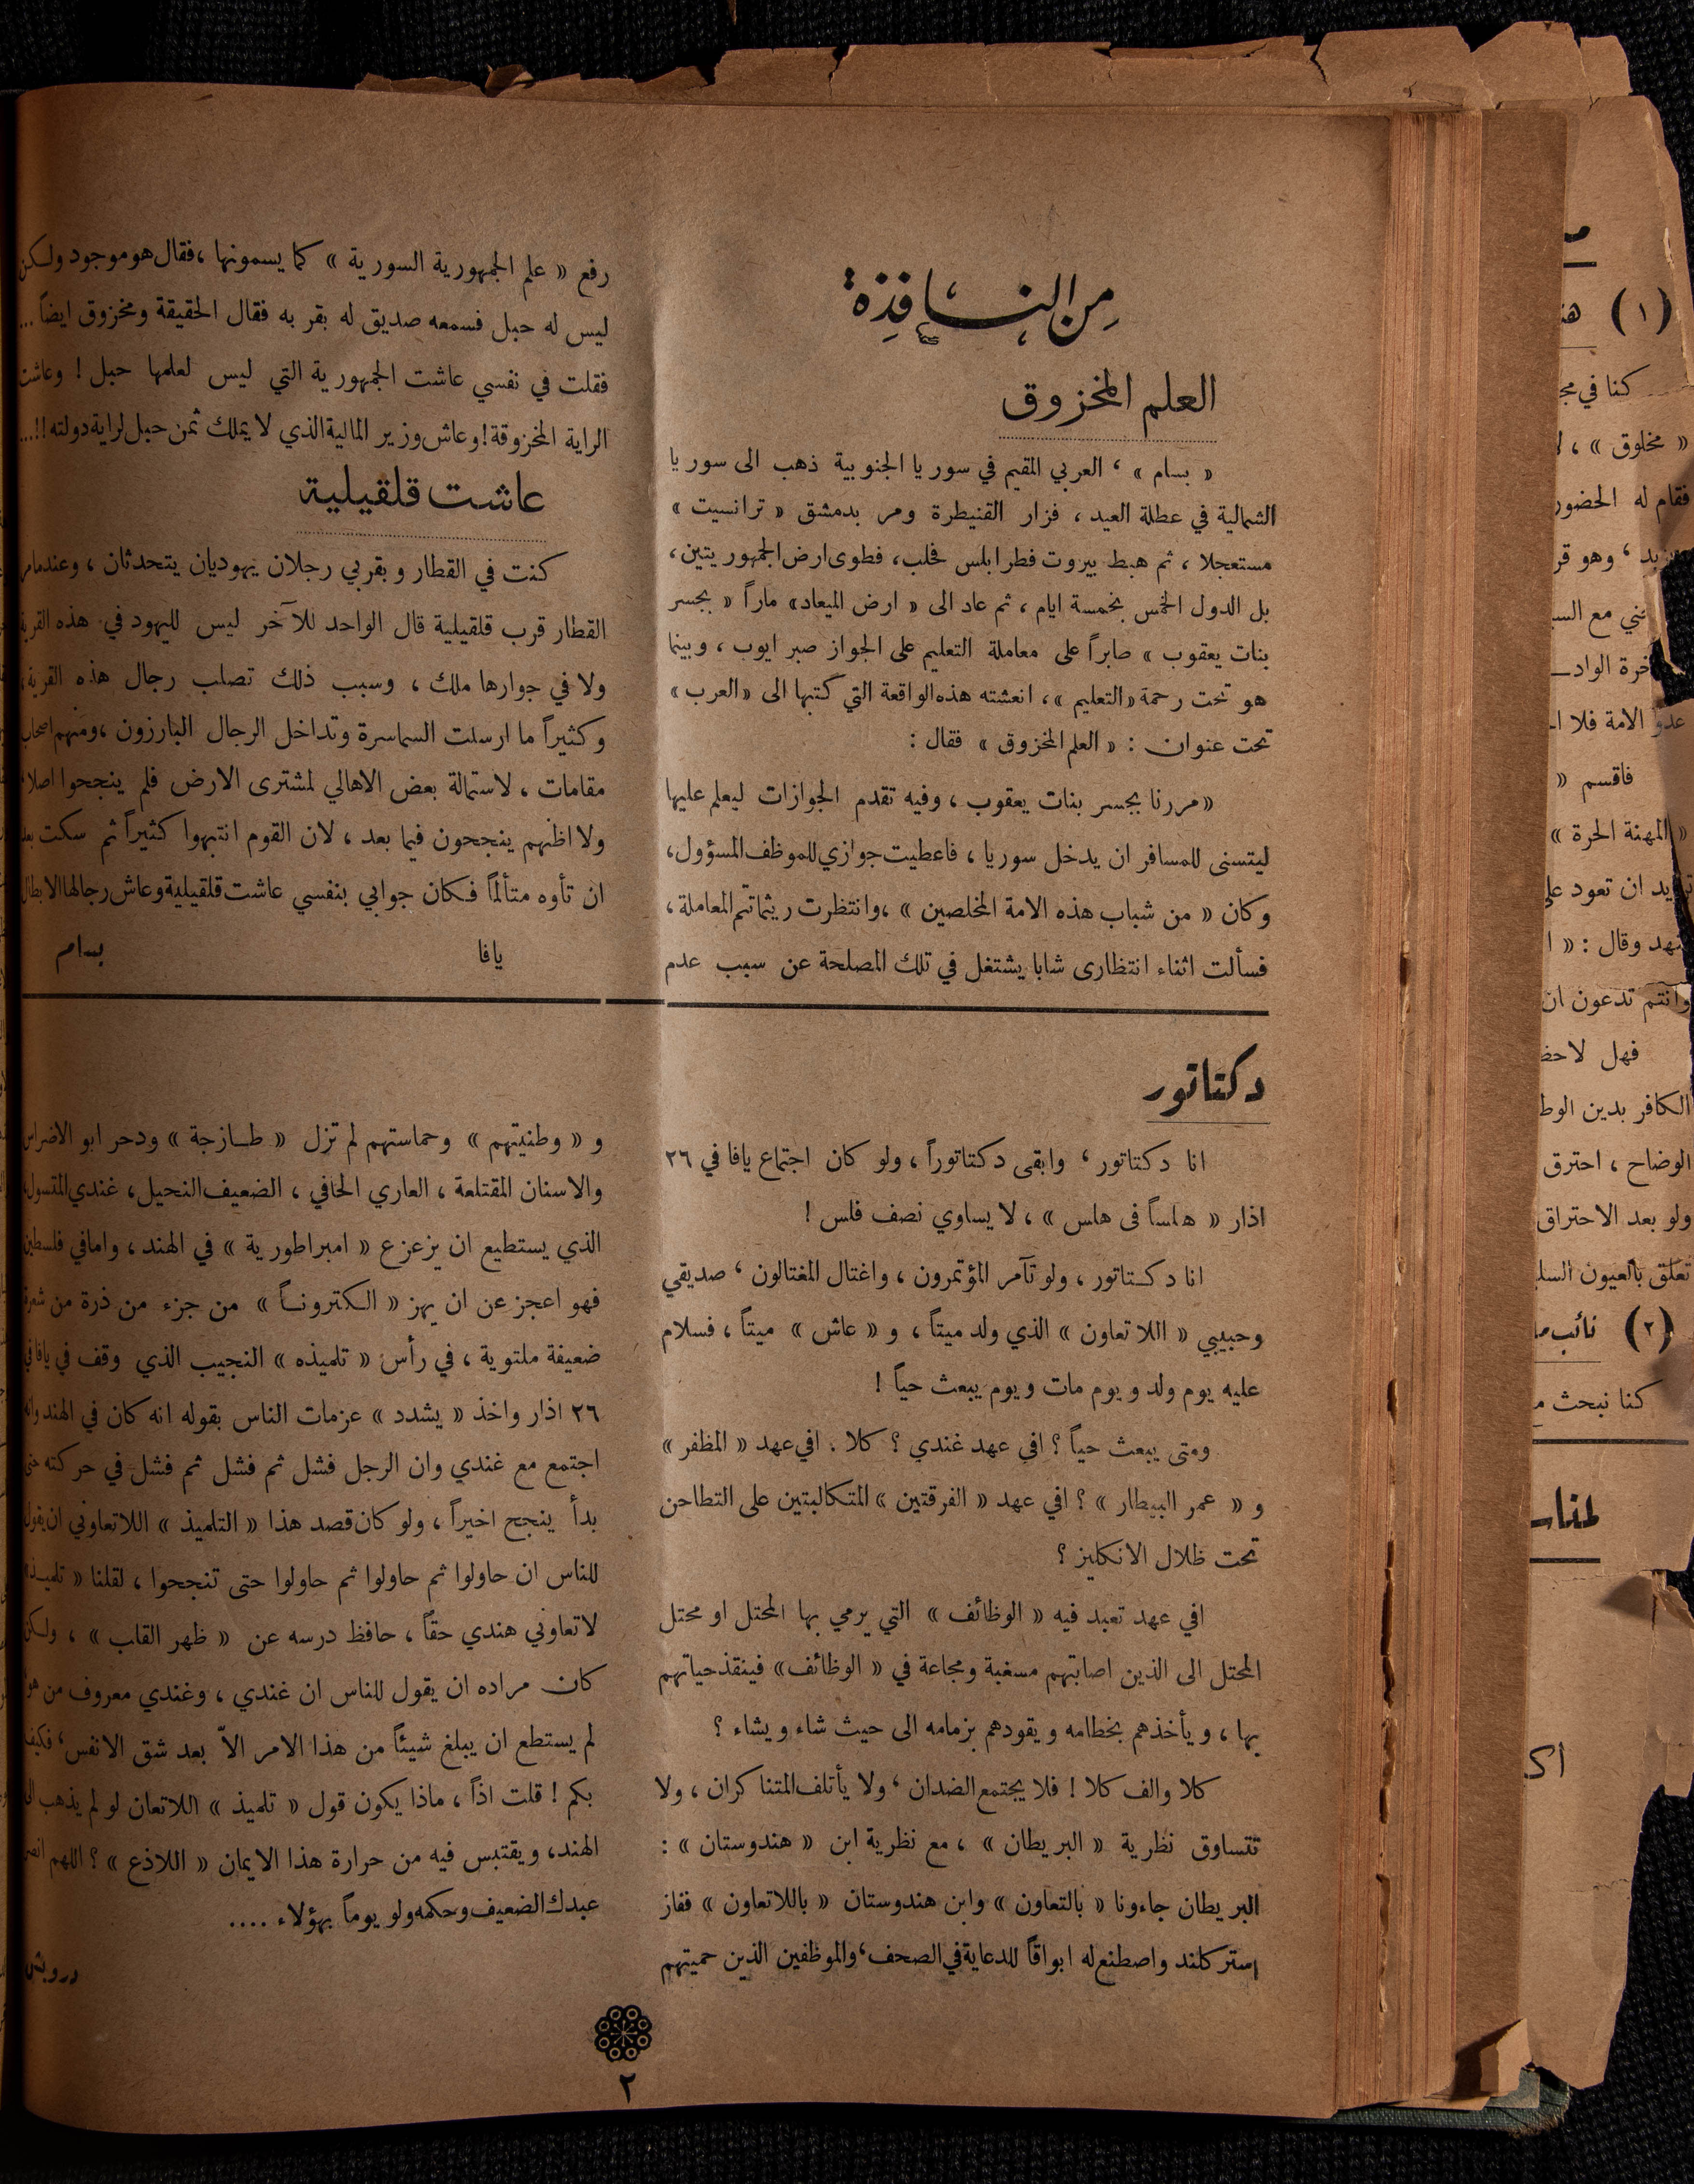 من النافذة
العلم المخزوق
« بسام » ، العربي المقيم في سوريا الجنوبية ذهب الى سوريا
الشمالية في عطلة العيد ، فزار القنيطرة ومر بدمشق « ترانسيت »
مستعجلا ، ثم هبط بيروت فطرابلس فحلب ، فطوى ارض الجمهوريتين ،
بل الدول الخمس بخمسة ايام ، ثم عاد الى « ارض الميعاد » ماراً « بجسر
بنات يعقوب » صابراً على معاملة التعليم على الجواز صبر ايوب ، وبينما
هو تحت رحمة « التعليم » ، انعشته هذه الواقعة التي كتبها الى « العرب »
تحت عنوان : « العلم المخزوق » فقال :
« مررنا بجسر بنات يعقوب ، وفيه تقدم الجوازات ليعلم عليها
ليتسنى للمسافر ان يدخل سوريا ، فاعطيت جوازي للموظف المسؤول ،
وكان « من شباب هذه الامة المخلصين » ، وانتظرت ريثما تتم المعاملة ،
فسألت اثناء انتظارى شابا يشتغل في تلك المصلحة عن سبب عدم
رفع « علم الجمهورية السورية » كما يسمونها ، فقال هو موجود ولكن
ليس له حبل فسمعه صديق له بقربه فقال الحقيقة ومخزوق ايضاً ...
فقلت في نفسي عاشت الجمهورية التي ليس لعلمها حبل ! وعاشت
الراية المخزوقة ! وعاش وزير المالية الذي لا يملك ثمن حبل لراية دولته !! ...
عاشت قلقيلية
كنت في القطار وبقربي رجلان يهوديان يتحدثان ، وعندما مر
القطار قرب قلقيلية قال الواحد للآخر ليس لليهود في هذه القرية
ولا في جوارها ملك ، وسبب ذلك تصلب رجال هذه القرية ،
وكثيراً ما ارسلت السماسرة وتداخل الرجال البارزون ، ومنهم اصحاب
مقامات ، لاستمالة بعض الاهالي لمشترى الارض فلم ينجحوا اصلا ،
ولا اظنهم ينجحون فيما بعد ، لان القوم انتبهوا كثيراً ثم سكت بعد
ان تأوه متألماً فكان جوابي بنفسي عاشت قلقيلية وعاش رجالها الابطال
يافا بسام
دكتاتور
انا دكتاتور ، وابقى دكتاتوراً ، ولو كان اجتماع يافا في ٢٦
اذار « هلساً فى هلس » ، لا يساوي نصف فلس !
انا دكتاتور ، ولو تآمر المؤتمرون ، واغتال المغتالون ، صديقي
وحبيبي « اللاتعاون » الذي ولد ميتاً ، و « عاش » ميتاً ، فسلام
عليه يوم ولد ويوم مات ويوم يبعث حياً !
ومتى يبعث حياً ؟ افي عهد غندي ؟ كلا . افي عهد « المظفر »
و « عمر البيطار » ؟ افي عهد « الفرقتين » المتكالبتين على التطاحن
تحت ظلال الانكليز ؟
افي عهد تعبد فيه « الوظائف » التي يرمي بها المحتل او محتل
المحتل الى الذين اصابتهم مسغبة ومجاعة في « الوظائف » فينقذ حياتهم
بها ، ويأخذهم بخطامه ويقودهم بزمامه الى حيث شاء ويشاء ؟
كلا والف كلا ! فلا يجتمع الضدان ، ولا يأتلف المتناكران ، ولا
تتساوق نظرية « البريطان » ، مع نظرية ابن « هندوستان » :
البريطان جاءونا « بالتعاون » وابن هندوستان « باللاتعاون » ففاز
استركلند واصطنع له ابواقاً للدعاية في الصحف ، والموظفين الذين حميتهم
و « وطنيتهم » وحماستهم لم تزل « طازجة » ودحر ابو الاضراس
والاسنان المقتلعة ، العاري الحافي ، الضعيف النحيل ، غندي المتسول ،
الذي يستطيع ان يزعزع « امبراطورية » في الهند ، واما في فلسطين
فهو اعجز عن ان يهز « الكترونـاً » من جزء من ذرة من شعرة
ضعيفة ملتوية ، في رأس « تلميذه » النجيب الذي وقف في يافا في
٢٦ اذار واخذ « يشدد » عزمات الناس بقوله انه كان في الهند وانه
اجتمع مع غندي وان الرجل فشل ثم فشل ثم فشل في حركته حتى
بدأ ينجح اخيراً ، ولو كان قصد هذا « التلميذ » اللاتعاوني ان يقول
للناس ان حاولوا ثم حاولوا ثم حاولوا حتى تنجحوا ، لقلنا « تلميذ »
لا تعاوني هندي حقاً ، حافظ درسه عن « ظهر القلب » ، ولكن
كان مراده ان يقول للناس ان غندي ، وغندي معروف من هو
لم يستطع ان يبلغ شيئاً من هذا الامر الاّ بعد شق الانفس ، فكيف
بكم ! قلت اذاً ، ماذا يكون قول « تلميذ » اللاتعان لو لم يذهب الى
الهند ، ويقتبس فيه من حرارة هذا الايمان « اللاذع » ؟ اللهم انصر
عبدك الضعيف وحكمه ولو يوماً بهؤلاء ....
درويش
٢
(١)
كنا في
« مخلوق » ،
فقام له الحضور
، وهو
مع
عدو الامة فلا
فاقسم «
« المهنة الحرة »
ان تعود
وقال : «
وانتم تدعون ان
فهل
الكافر بدين
الوضاح ، احترق
ولو بعد الاحتراق
تعلق بالعيون
(٢) نائب
كنا نبحث